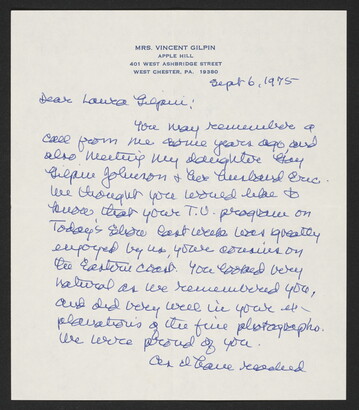 MRS. VINCENT GILPIN
APPLE HILL
401 WEST ASHBRIDGE STREET
WEST CHESTER, PA. 19380
Sept 6, 1975
Dear Laura Gilpin:
You may remember a
call from me some years ago and
also meeting my daughter Gay
Gilpin Johnson & her husband Eric.
We thought you would like to
know that your T.V. program on
Today's Show last week was greatly
enjoyed by us, your cousins on
the Eastern coast. You looked very
natural as we remembered you,
and did very well in your ex-
planations of the fine photographs.
We were proud of you.
As I have reached